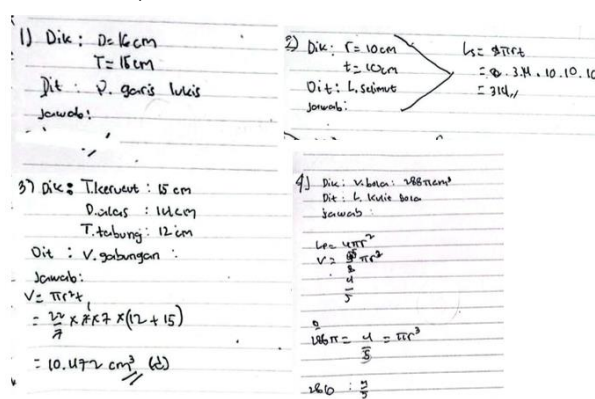 1) Dik : D= 16 cm
T= 15 cm
Dit : P. garis lukis
Jawab:
2) Dik: r= 10 cm
t= 10 cm
Dit: L. Selimut
Jawab:
Ls= 2πrt
= 2. 3,14. 10. 10. 10
= 314,,
3) Dik: T.kerucut : 15 cm
D.alas : 14 cm
T. tabung : 12 cm
Dit : V. gabungan :
Jawab:
V= πr²t
= 22/7 x 7 x 7 x (12 + 15)
= 10.472 cm³ (d)
4) Dik: V. bola: 288 π cm³
Dit : L. Kulit Bola
Jawab :
Lp= 4πr²
V=
πr²
4
3
= 4 = πr³